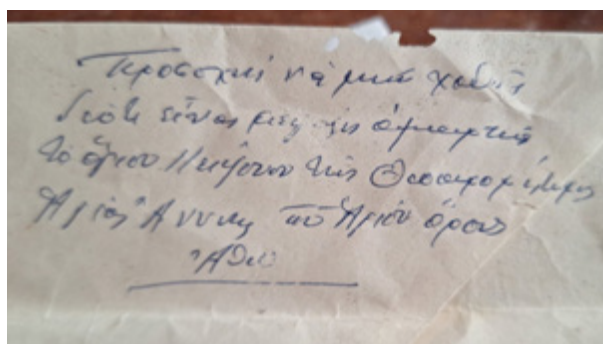 Προσοχή νά μήν χαθῇ
διότι εἶναι μεγάλης ἁμαρτίας
τό ἅγιον τῆς Θεοπρομήτορος
Ἁγίας Ἄννης τοῦ Ἁγίου ὄρους
Ἄθω